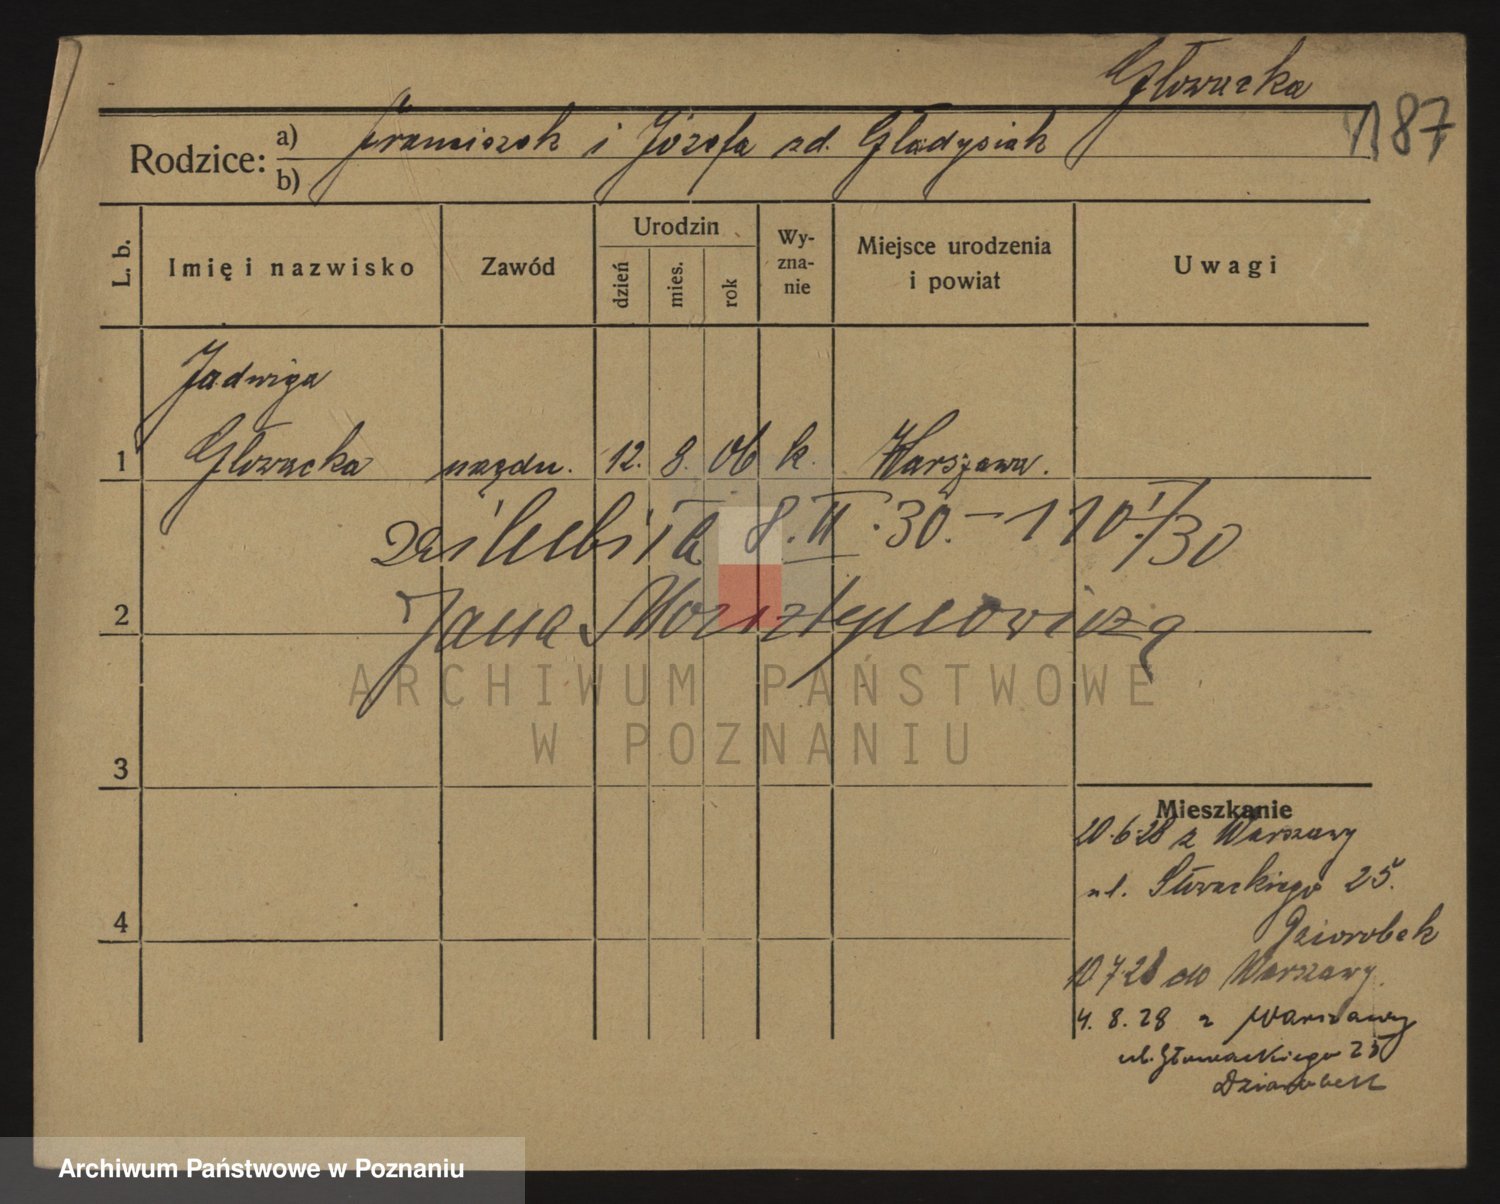 Głowacka
187
Rodzice: a) Franciszek i Józefa zd. Gładysiak
b)
L. b.
Imię i nazwisko
Zawód
Urodzin
dzień
mies.
rok
Wy-
zna-
nie
Miejsce urodzenia
i powiat
Uwagi
Jadwiga
1 Głowacka urzędn. 12. 8. 06 k. Warszawa.
8. II. 30. – 110/30
2 Jana
ARCHIWUM PAŃSTWOWE
W POZNANIU
3
4
Mieszkanie
20.6.28 z Warszawy
ul. Słowackiego 25.
10.7.28 do Warszawy.
4. 8. 28 z Warszawy
ul. Słowackiego 25
Archiwum Państwowe w Poznaniu